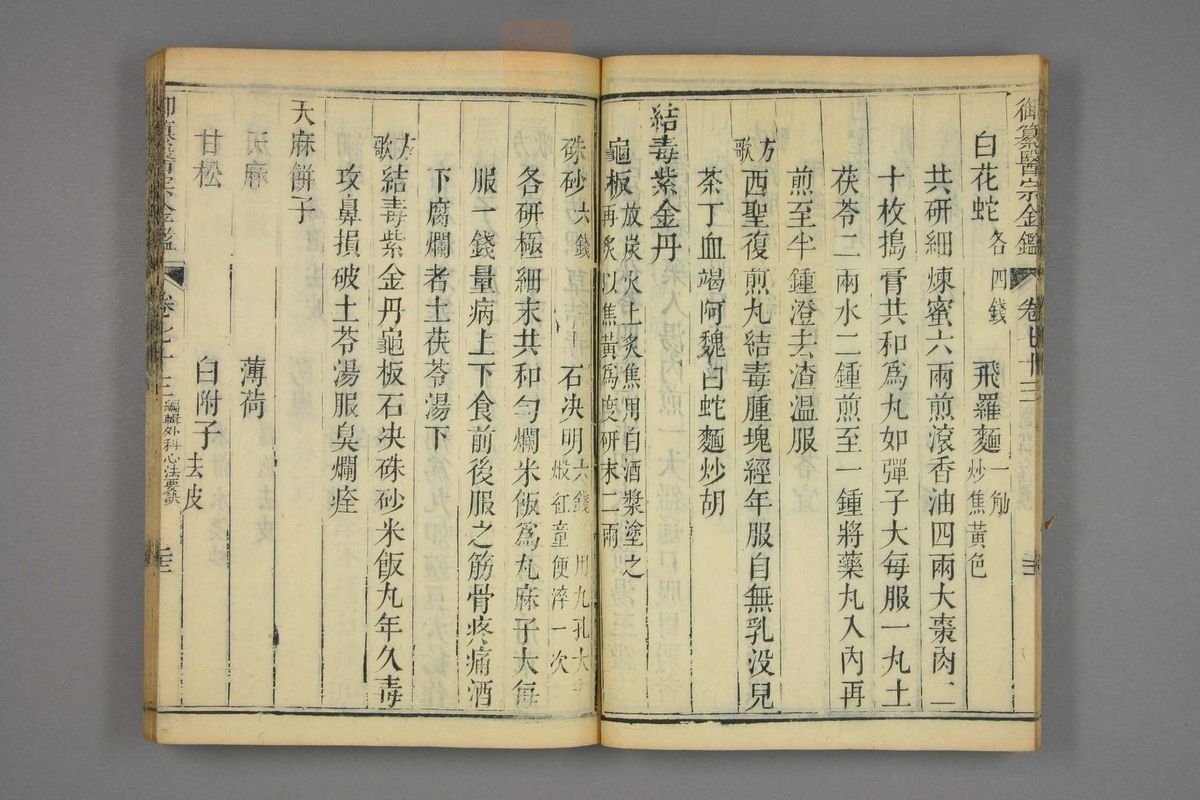 御纂醫宗金鑑 卷七十三
白花蛇各四錢 飛羅麵一觔炒焦黃色
共研細煉蜜六兩煎滾香油四兩大棗肉二
十枚搗膏共和爲丸如彈子大每服一丸土
茯苓二兩水二鍾煎至一鍾將藥丸入內再
煎至半鍾澄去渣溫服
方歌 西聖復煎丸結毒腫塊經年服自無乳沒兒
茶丁血竭阿魏白蛇麵炒胡
結毒紫金丹
龜板放炭火上炙焦用白酒漿塗之再炙以焦黃爲度研末二兩
硃砂六錢 石決明六錢用九孔大者煅紅童便淬一次
各研極細末共和勻爛米飯爲丸麻子大每
服一錢量病上下食前後服之筋骨疼痛酒
下腐爛者土茯苓湯下
方歌 結毒紫金丹龜板石决硃砂米飯丸年久毒
攻鼻損破土苓湯服臭爛痊
天麻餅子
天麻 薄荷
甘松 白附子去皮
御纂醫宗金鑑 卷七十三 編輯外科心法要訣